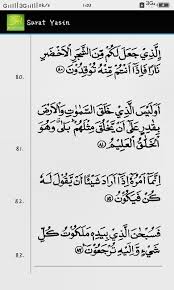 3G
1:03
3G
Surat Yasin
ۨالَّذِيْ جَعَلَ لَكُمْ مِّنَ الشَّجَرِ الْاَخْضَرِ
نَارًا فَاِذَآ اَنْتُمْ مِّنْهُ تُوْقِدُوْنَ ﴿٨٠﴾
80.
اَوَلَيْسَ الَّذِيْ خَلَقَ السَّمٰوٰتِ وَالْاَرْضَ
بِقٰدِرٍ عَلٰٓى اَنْ يَّخْلُقَ مِثْلَهُمْ ۗ بَلٰى وَهُوَ
الْخَلّٰقُ الْعَلِيْمُ ﴿٨١﴾
81.
اِنَّمَآ اَمْرُهٗٓ اِذَآ اَرَادَ شَيْـًٔا اَنْ يَّقُوْلَ لَهٗ
كُنْ فَيَكُوْنُ ﴿٨٢﴾
82.
فَسُبْحٰنَ الَّذِيْ بِيَدِهٖ مَلَكُوْتُ كُلِّ
شَيْءٍ وَّاِلَيْهِ تُرْجَعُوْنَ ﴿٨٣﴾